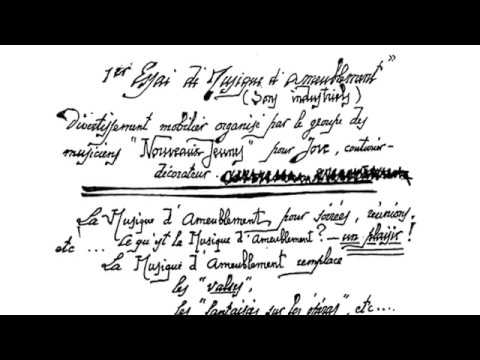 1er Essai de Musique d'Ameublement"
(Sons industriels)
Divertissement mobilier organisé par le groupe des
musiciens "Nouveaux-Jeunes" pour Jove, couturier-
décorateur.
La Musique d'Ameublement pour soirées, réunions,
etc.... Ce qu'est la Musique d'Ameublement? — un plaisir!
La Musique d'Ameublement remplace
les "valses",
les "fantaisies sur les opéras", etc....